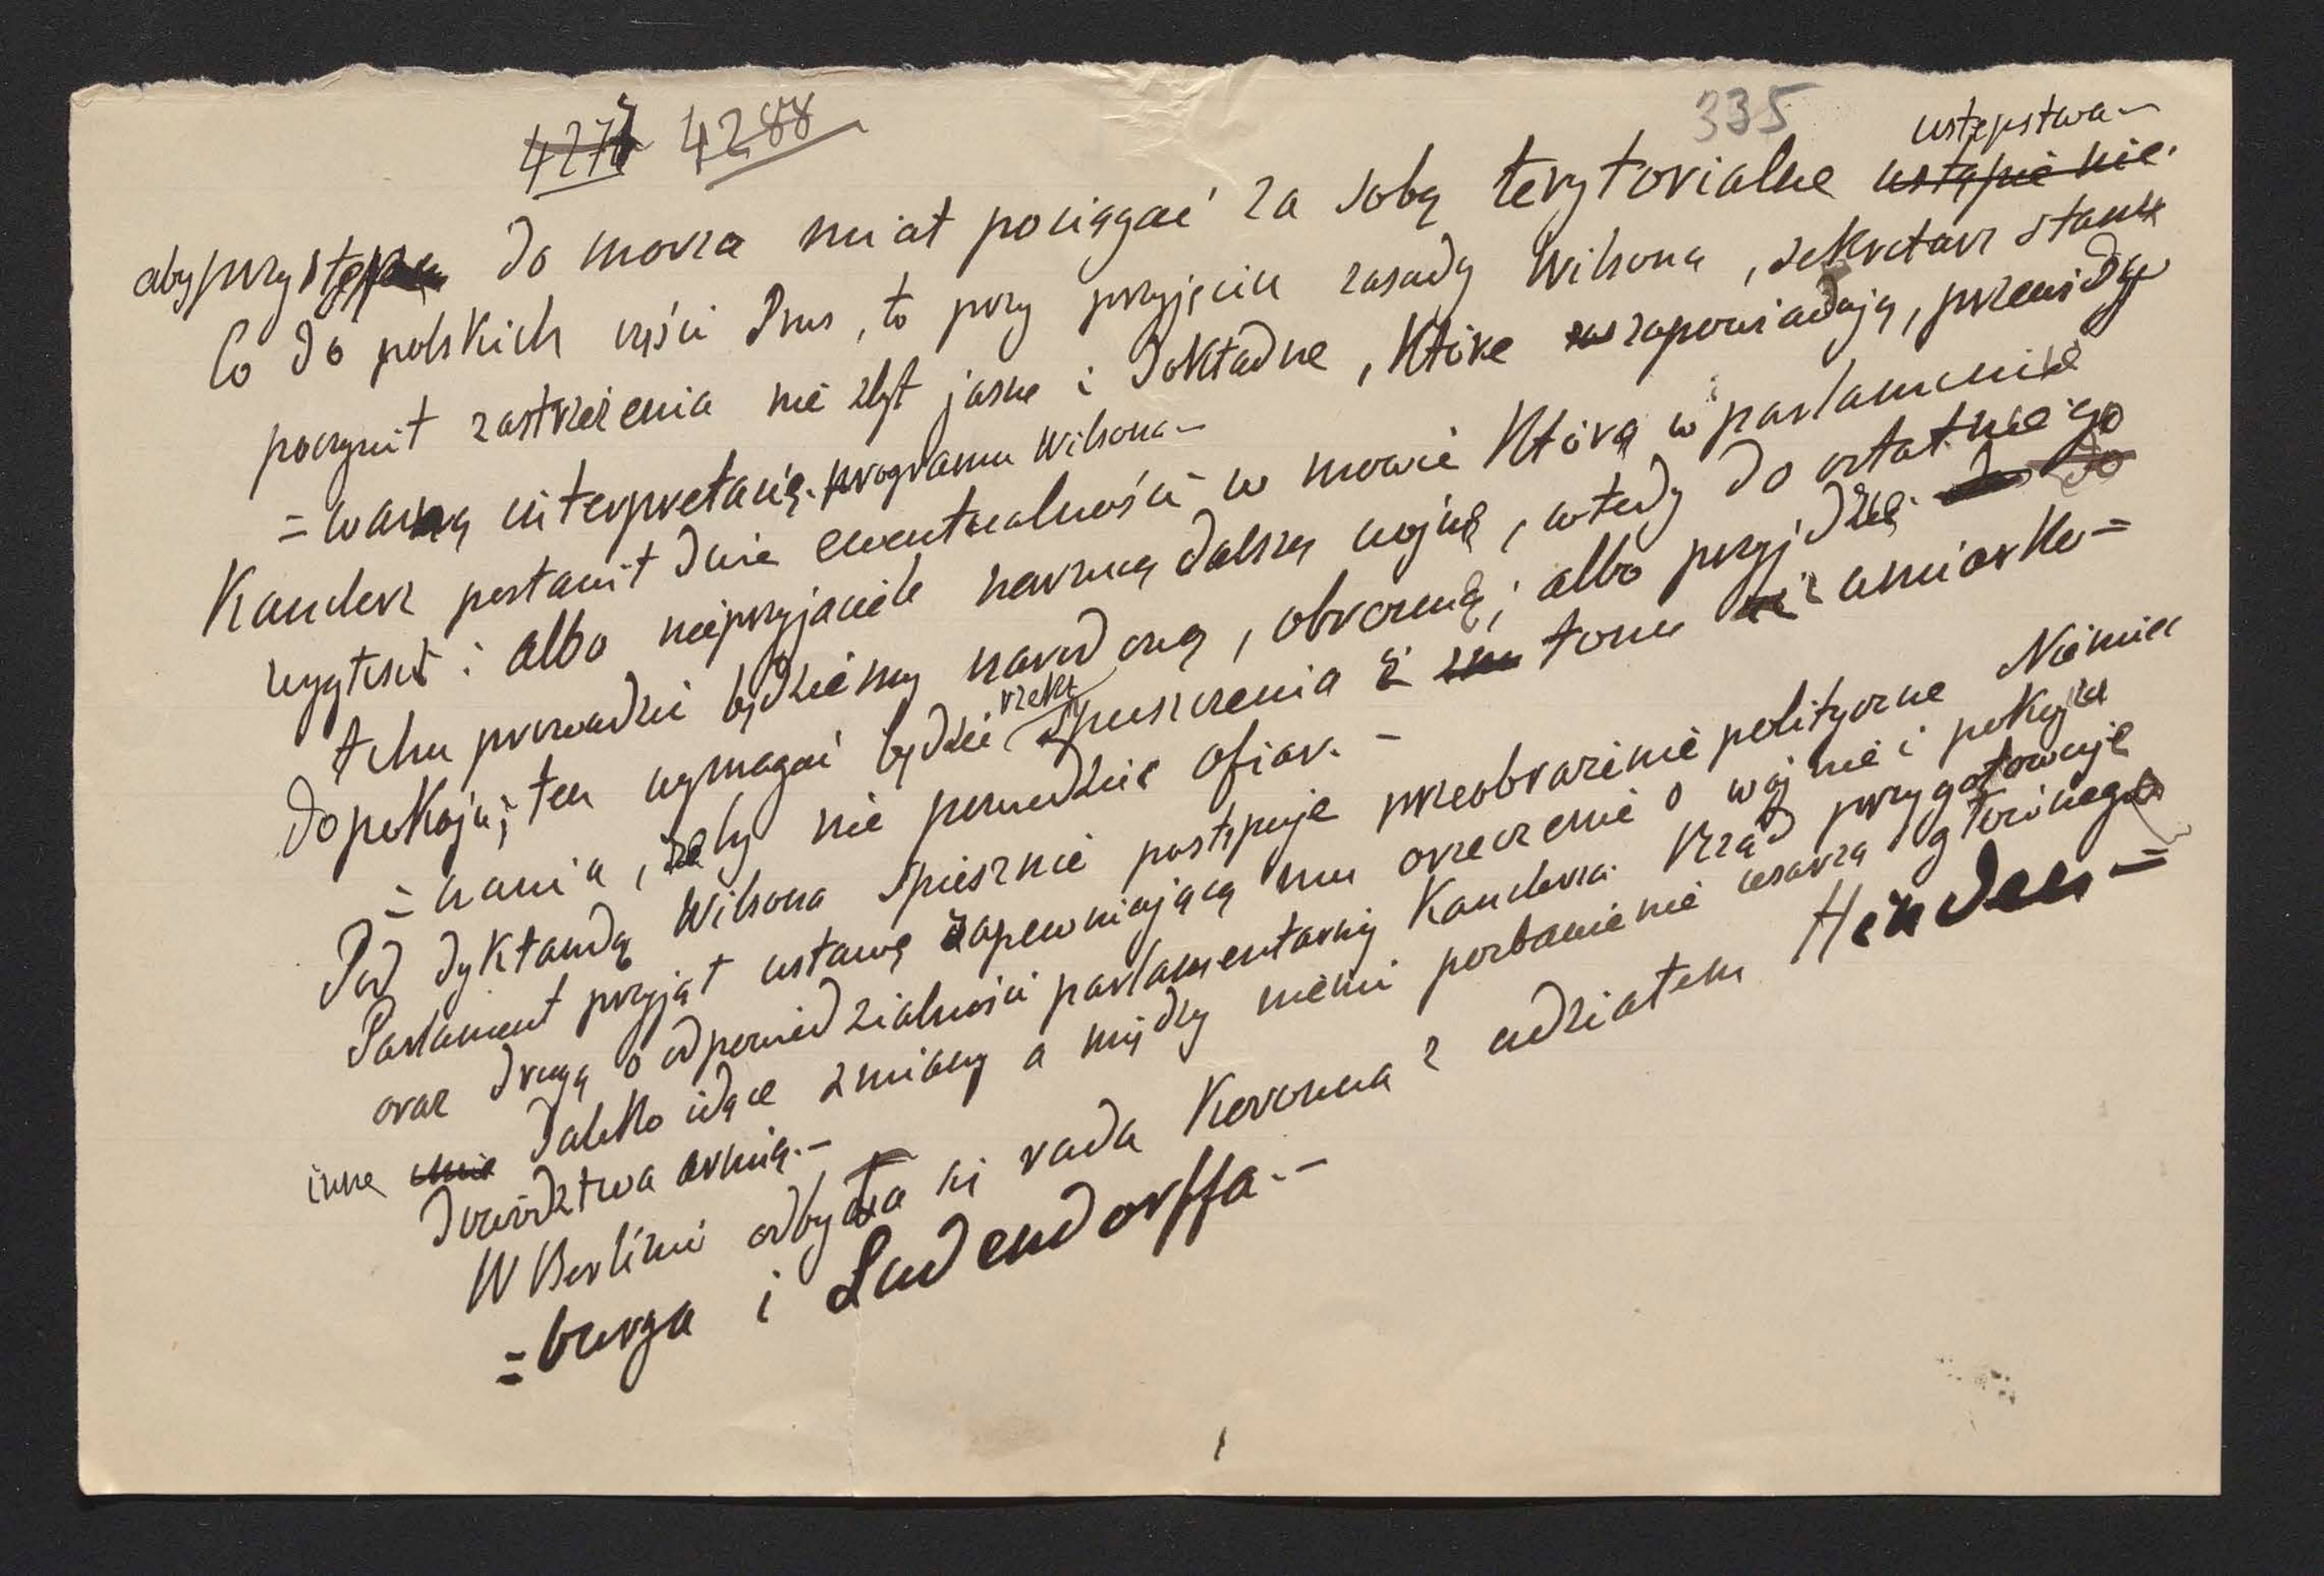 4277 4288
335
ustępstwa —
aby przystęp do morza miał pociągać za sobą terytorialne ustąpienie.
Co do polskich części Prus, to przy przyjęciu zasady Wilsona, sekretarz stanu
poczynił zastrzeżenia nie zbyt jasne i dokładne, które zapowiadają, przewidy
= waną interpretacię programu Wilsona —
Kanclerz postawił dwie ewentualności w mowie którą w parlamencie
wygłosił: albo nieprzyjaciele narzucą dalszą wojnę, wtedy do ostatniego
tchu prowadzić będziemy narodową, obronną; albo przyjdzie do
do pokoju; ten wymagać będzie rzekł spuszczenia z tonu i umiarko =
= wania, żeby nie powiedzieć ofiar. —
Pod dyktandą Wilsona spiesznie postępuje przeobrażenie polityczne Niemiec
Parlament przyjął ustawę zapewniającą mu orzeczenie o wojnie i pokoju
oraz drugą o odpowiedzialności parlamentarnej Kanclerza. Rząd przygotowuje
inne daleko idące zmiany a między niemi pozbawienie cesarza głównego
dowództwa armią. —
W Berlinie odbyła się rada Koronna z udziałem Hinden =
= burga i Ludendorffa. —